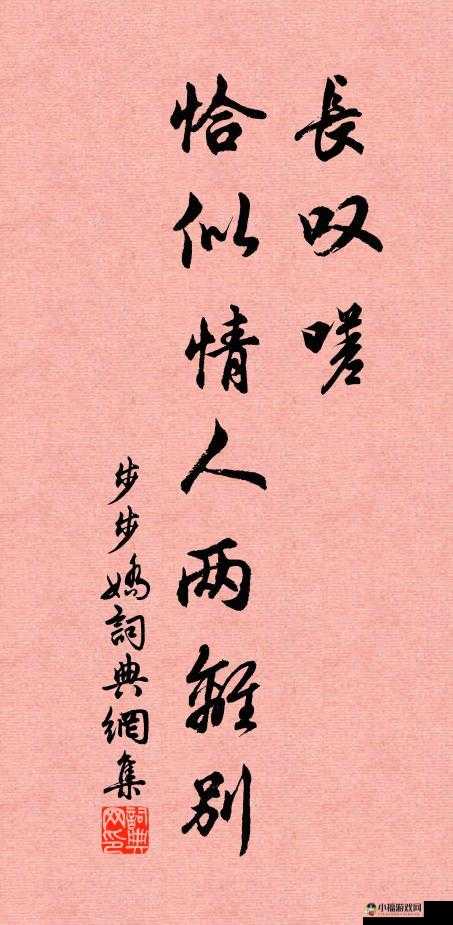 長叹嗟
恰似情人两離别
步步嬌詞典網集
詞典网印
小福游戏网